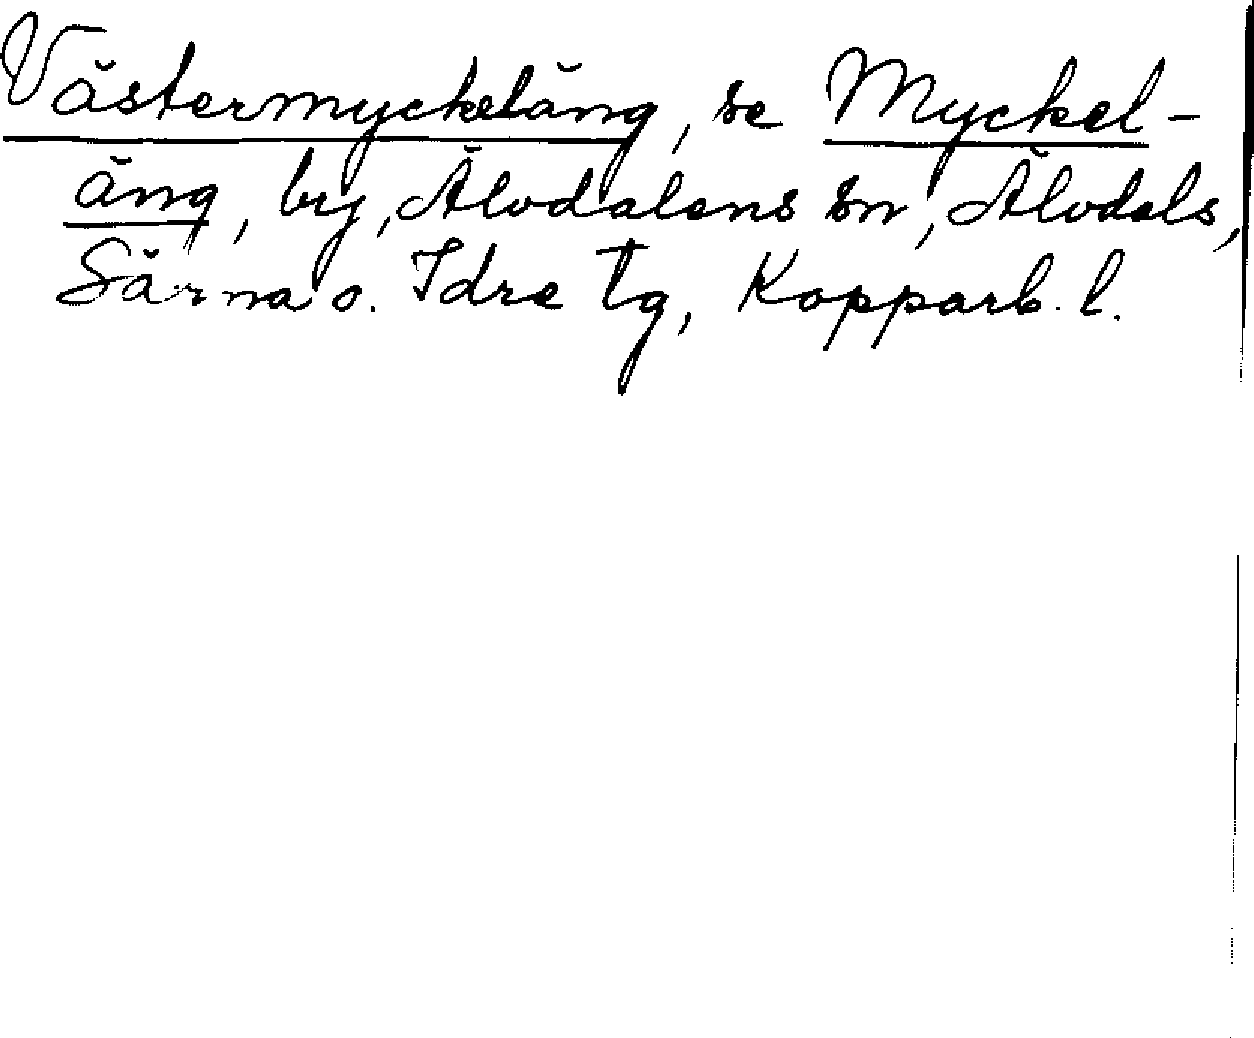 Västermyckeläng, se Myckel-
äng, by, Älvdalens sn, Älvdals,
Särna o. Idre tg, Kopparb. l.